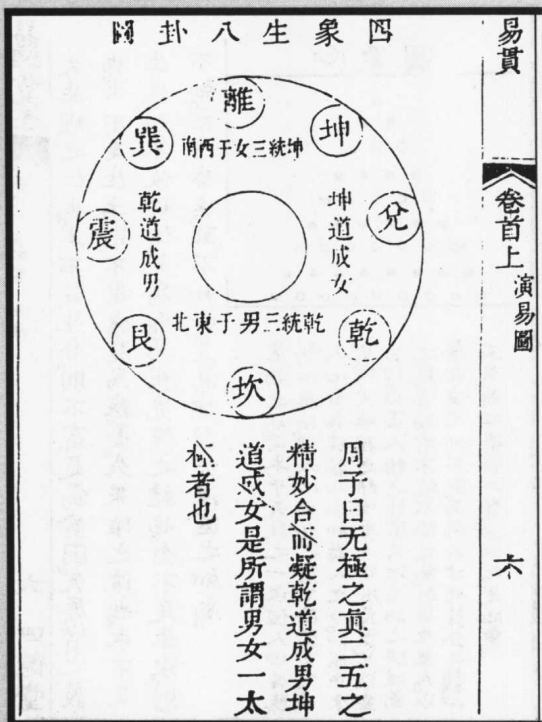 易貫
卷首上 演易圖
六
四象生八卦圖
離
坤
兌
乾
坎
艮
震
巽
坤統三女于西南
坤道成女
乾統三男于東北
乾道成男
周子曰无極之眞二五之
精妙合而凝乾道成男坤
道成女是所謂男女一太
極者也